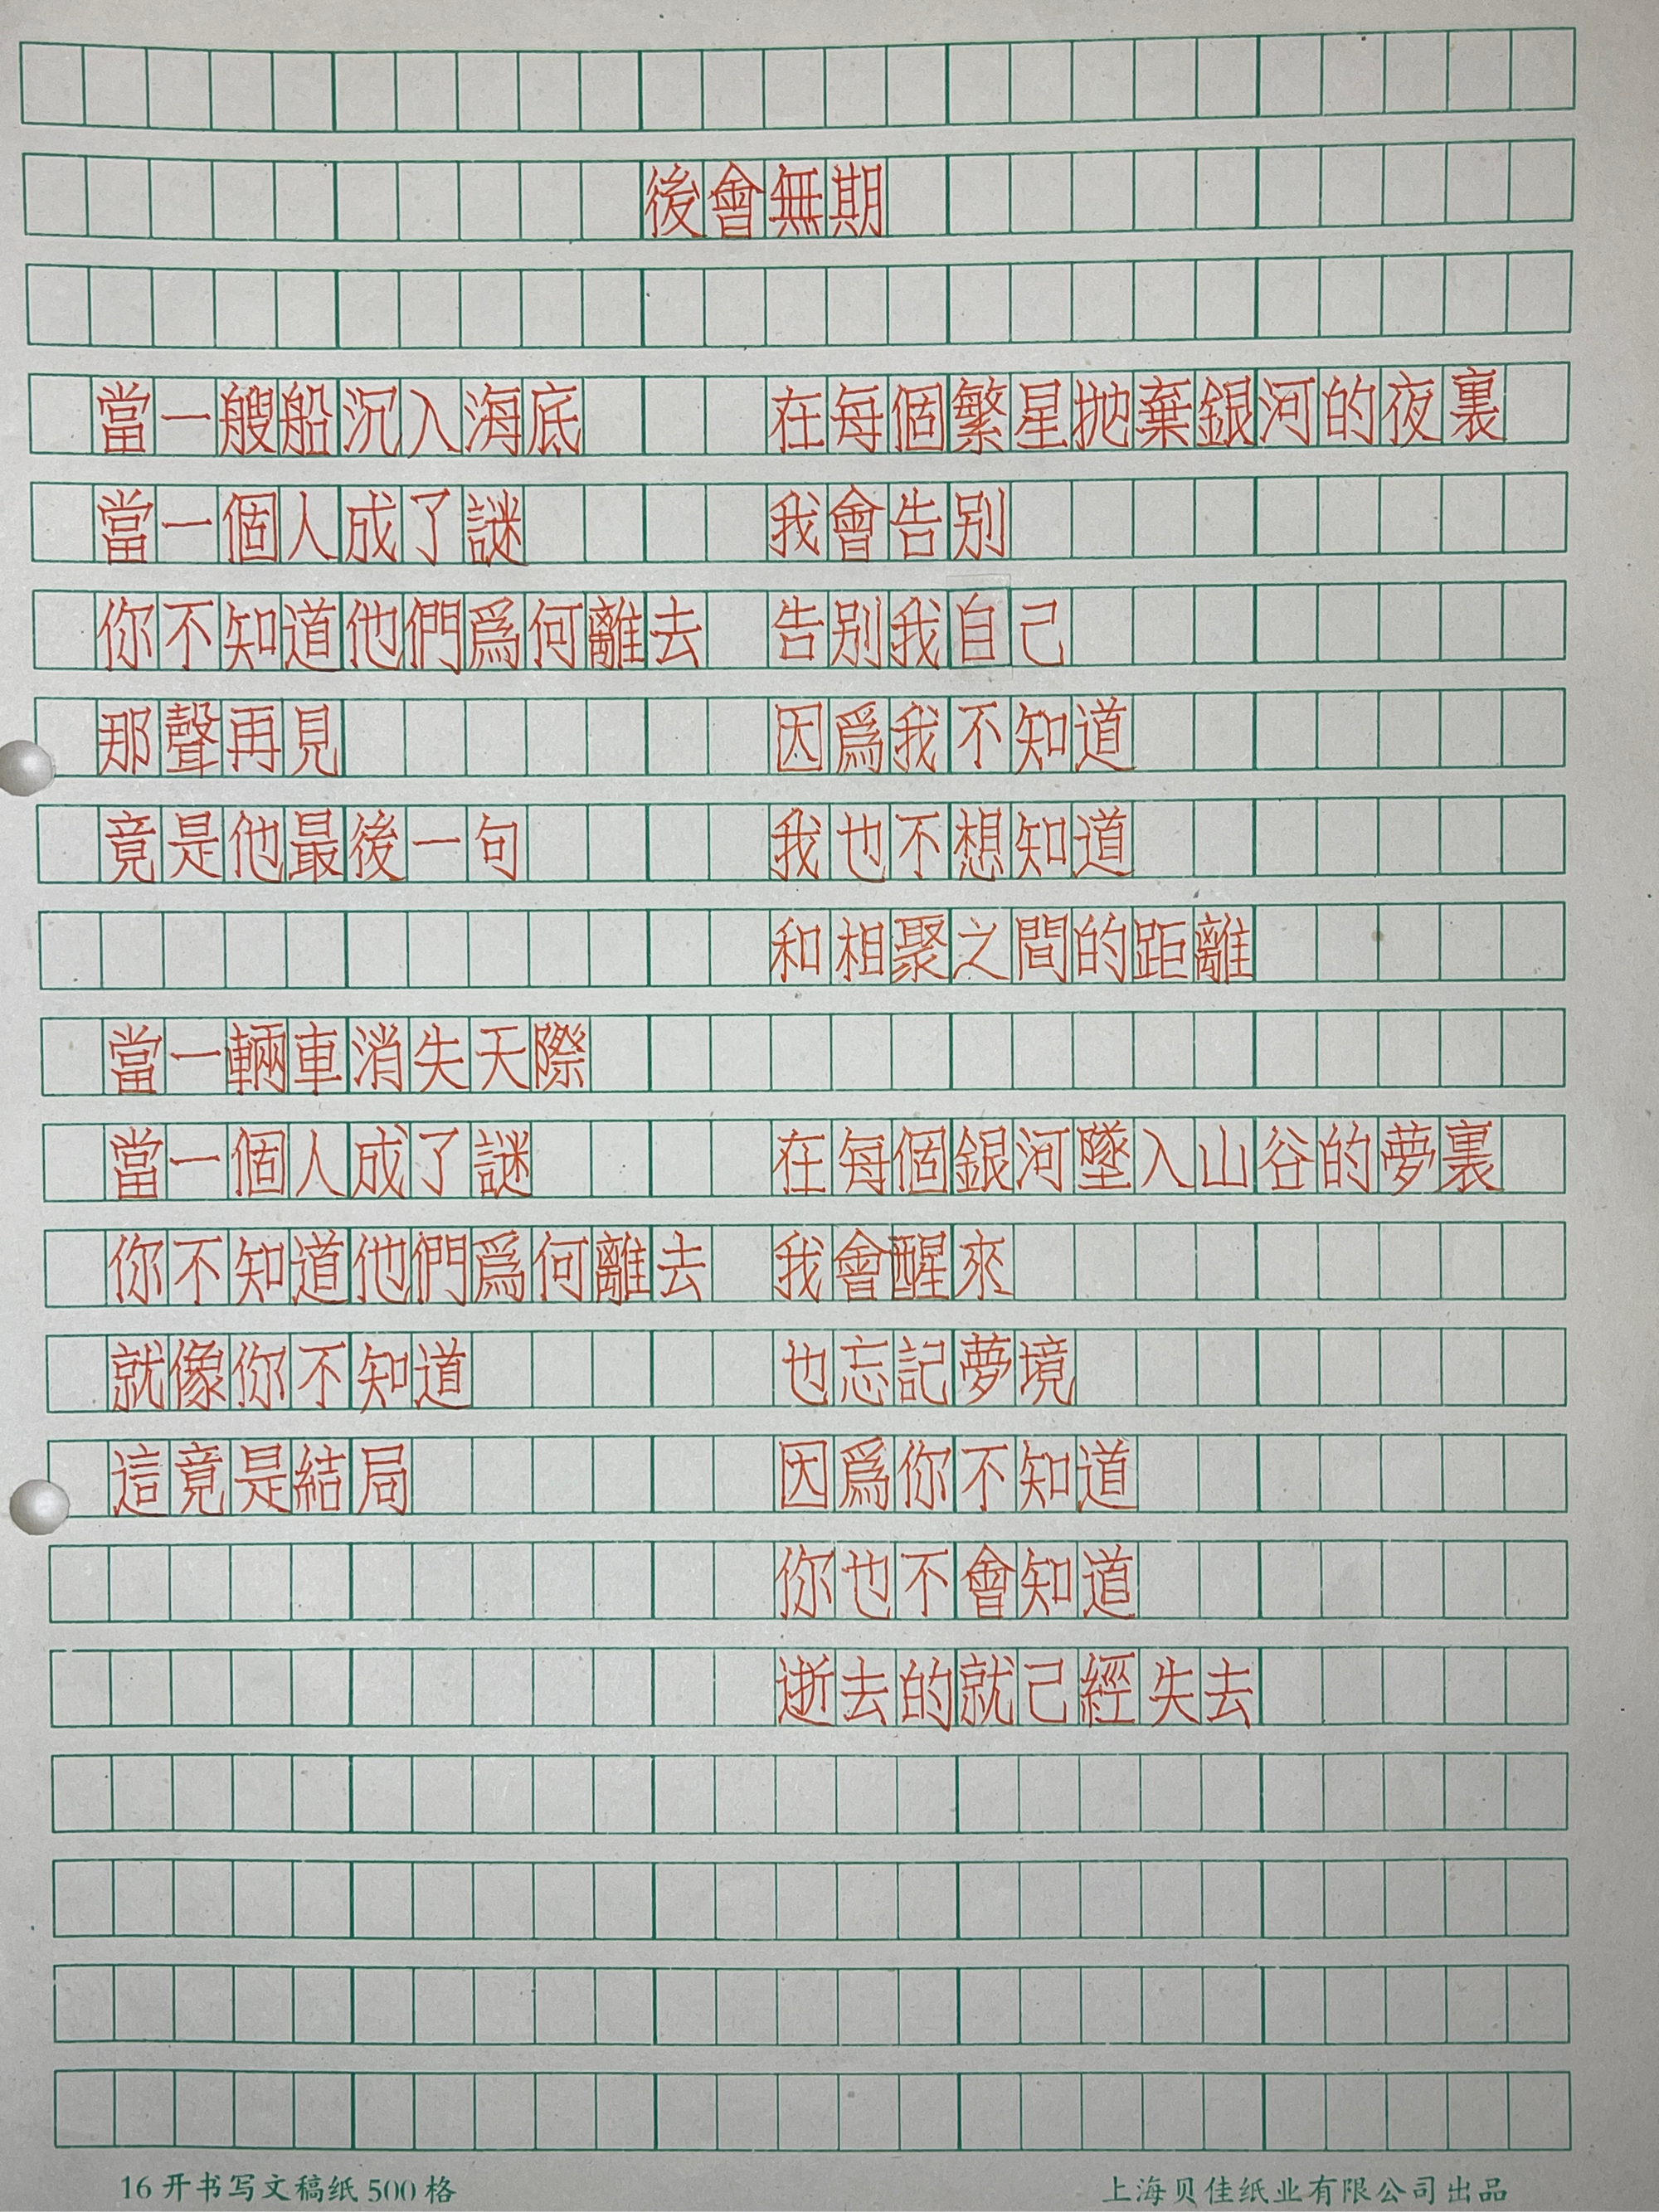 後會無期
當一艘船沉入海底
當一個人成了謎
你不知道他們爲何離去
那聲再見
竟是他最後一句
當一輛車消失天際
當一個人成了謎
你不知道他們爲何離去
就像你不知道
這竟是結局
在每個繁星拋棄銀河的夜裏
我會告别
告别我自己
因爲我不知道
我也不想知道
和相聚之間的距離
在每個銀河墜入山谷的夢裏
我會醒來
也忘記夢境
因爲你不知道
你也不會知道
逝去的就己經失去
16开书写文稿纸500格
上海贝佳纸业有限公司出品